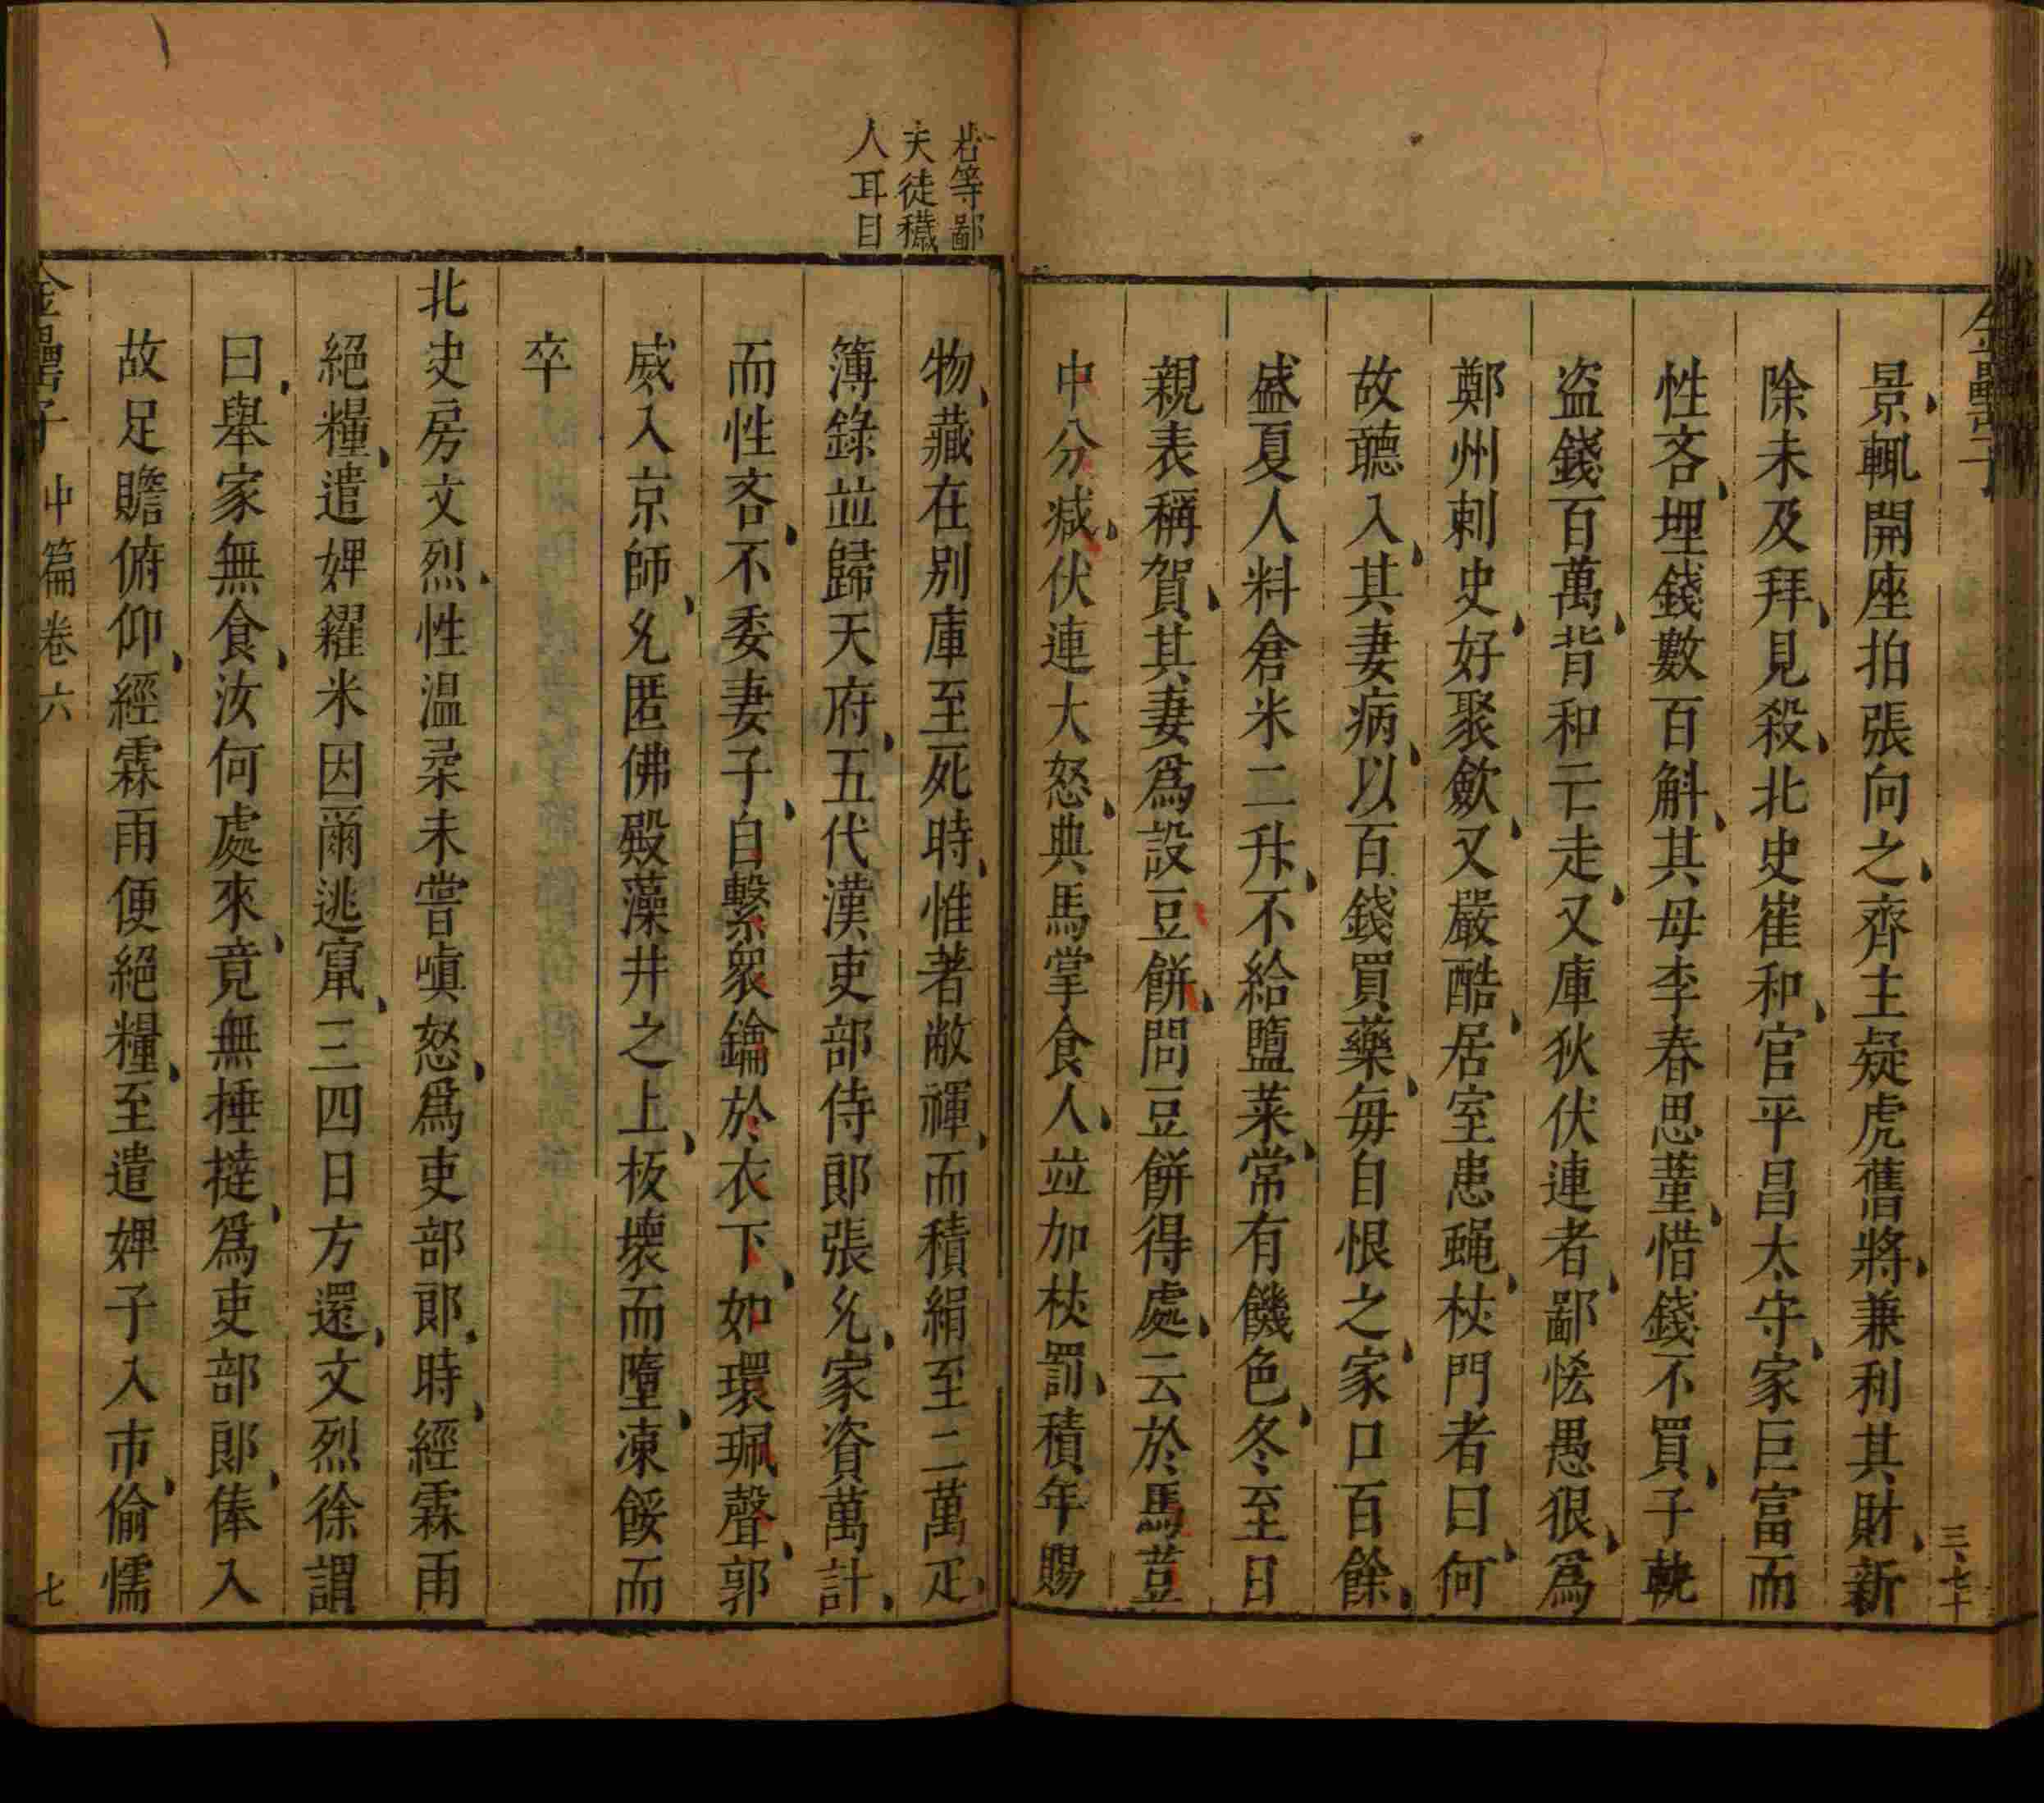 景輒開座拍張向之齊主疑虎舊將兼利其財新
除未及拜見殺北史崔和官平昌太守家巨富而
性吝埋錢數百斛其母李春思蓳惜錢不買子軌
盗錢百萬背和亡走又庫狄伏連者鄙恡愚狠爲
鄭州刺史好聚歛又嚴酷居室患蠅杖門者曰何
故聽入其妻病以百錢買藥每自恨之家口百餘
盛夏人料倉米二升不給鹽菜常有饑色冬至日
親表稱賀其妻爲設豆餅問豆餅得處云於馬荳
中分减伏連大怒典馬掌食人並加杖罰積年賜
若等鄙
夫徒穢
人耳目
物藏在别庫至死時惟著敝褌而積絹至二萬疋
簿錄並歸天府五代漢吏部侍郎張允家資萬計
而性吝不委妻子自繫衆鑰於衣下如環珮聲郭
威入京師允匿佛殿藻井之上板壞而墮凍餒而
卒
北史房文烈性温柔未嘗嗔怒爲吏部郎時經霖雨
絕糧遣婢糴米因爾逃竄三四日方還文烈徐謂
曰舉家無食汝何處來竟無捶撻爲吏部郎俸入
故足贍俯仰經霖雨便絕糧至遣婢子入市偷懦
金罍子 中篇卷六 七